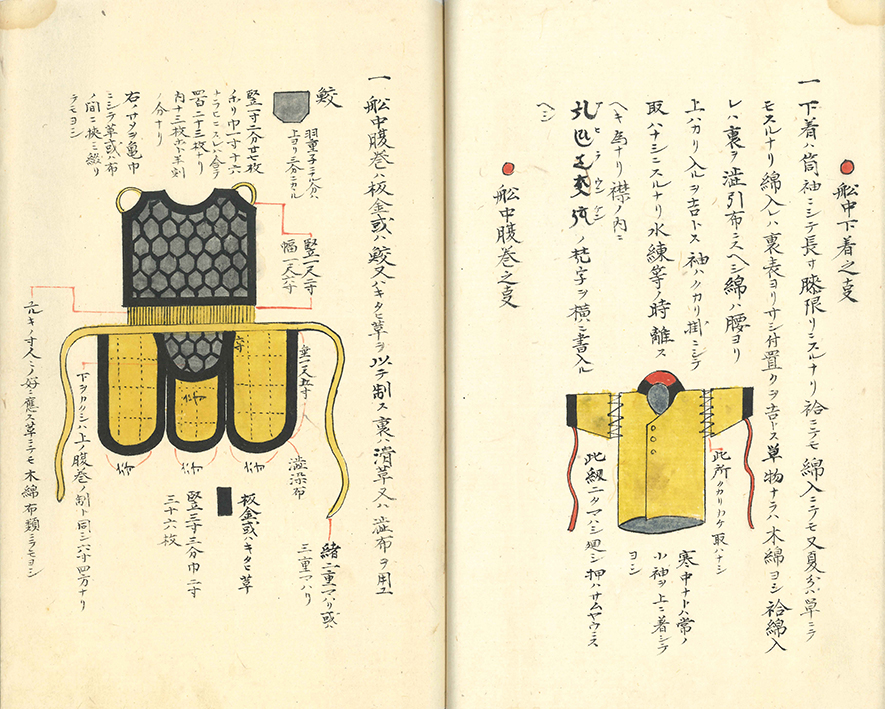 船中下着之事
一 下着ハ筒袖ニシテ長サ膝限リニスルナリ袷ニテモ綿入ニテモ又夏分ハ単ニテ
モスルナリ綿入レハ裏表ヨリサシ付置クヲ吉トス単物ナラハ木綿ヨシ袷綿入
レハ裏ヲ澁引布ニスヘシ綿ハ腰ヨリ
上ハカリ入ルヲ吉トス袖ハクカリ掛ニシテ
取ハナシニスルナリ水練等ノ時離ス
ヘキ為ナリ襟ノ内ニ
アヒラウンケン
ノ梵字ヲ横ニ書入ル
ヘシ
此所クカリカケ取ハナシ
此紐ニクマハシ廻シ押ハサムヤウニス
寒中ナトハ常ノ
小袖ヲ上ニ着シテ
ヨシ
船中腹巻之事
一 船中腹巻ハ板金或ハ鮫又ハキタヒ革ヲ以テ制ス裏ハ滑革又ハ澁布ヲ用ユ
鮫
上ヨリ三分ニカル
竪一寸二分廿七枚
ホリ巾一寸十六
ナラヒニスレハ合テ
四百二十三枚ナリ
ノ分ナリ
右ノサメヲ亀巾
ニシテ革或ハ布
ノ間ニ挟ミ綴リ
テモヨシ
竪一尺二寸
幅一尺六寸
垂一尺五寸
澁染布
緒二重マハリ或ハ
三重マハリ
板金或ハキタヒ革
竪三寸三分巾二寸
三十六枚
下ヲリクシハ上ノ腹巻ノ制ト同シ六寸四方ナリ
ノ寸人々ノ好ニ應ス革ニテモ木綿布類ニテモヨシ